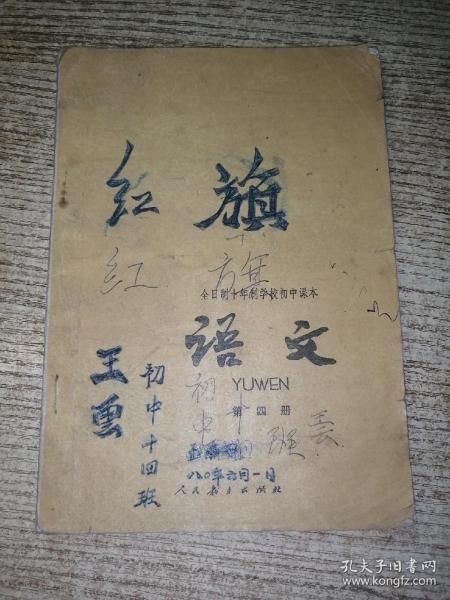 红旗
红旗
全日制十年制学校初中课本
语文
YUWEN
第四册
王雲
初中十四班
初中十
班
八〇年六月一日
人民教育出版社
孔夫子旧书网
www.kongfz.com